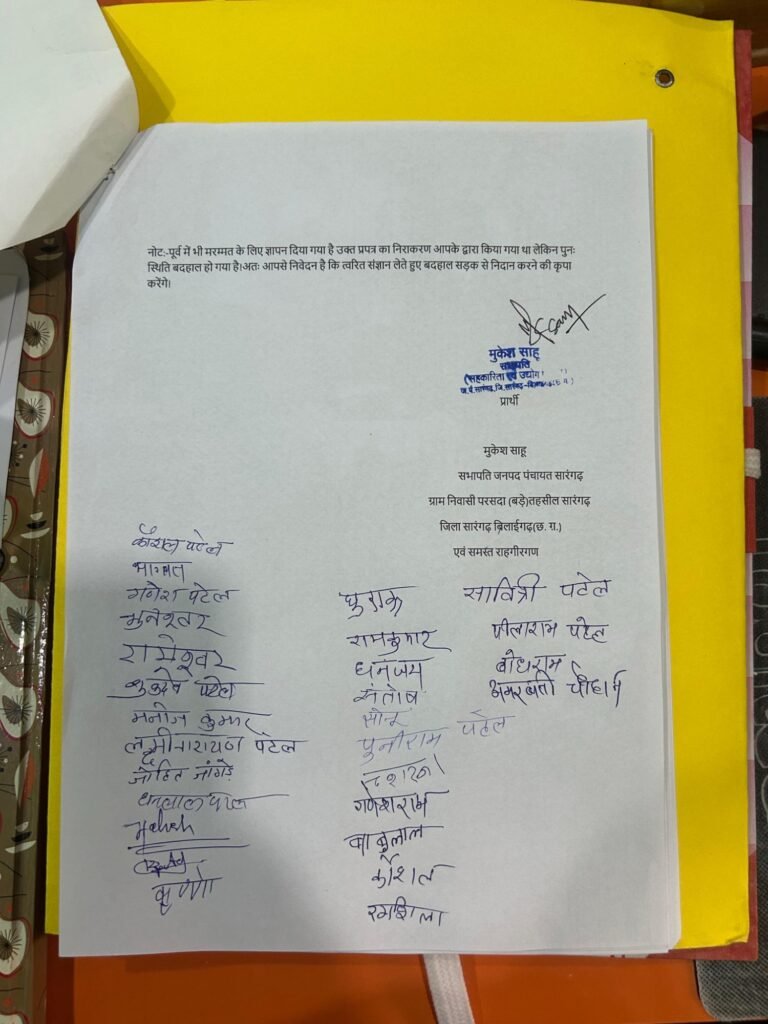 नोटः-पूर्व में भी मरम्मत के लिए ज्ञापन दिया गया है उक्त प्रपत्र का निराकरण आपके द्वारा किया गया था लेकिन पुनः
स्थिति बदहाल हो गया है।अतः आपसे निवेदन है कि त्वरित संज्ञान लेते हुए बदहाल सड़क से निदान करने की कृपा
करेंगे।
मुकेश साहू
सभापति
(सहकारिता एवं उद्योग
प्रार्थी
मुकेश साहू
सभापति जनपद पंचायत सारंगढ़
ग्राम निवासी परसदा (बड़े)तहसील सारंगढ़
जिला सारंगढ़ बिलाईगढ़(छ. ग.)
एवं समस्त राहगीरगण
कौशल पटेल
भागवत
गणेश पटेल
भुनेश्वर
रामेश्वर
पटेल
मनोज कुमार
लक्ष्मीनारायण पटेल
जोहित जांगड़े
Mahesh
कृष्णो
रामकुमार
धनंजय
संतोष
सोनू
पुनीराम पटेल
गणेशराम
बाबुलाल
कौशल
रमशिला
सावित्री पटेल
पीलाराम पटेल
बोधराम
अमरबती चौहान